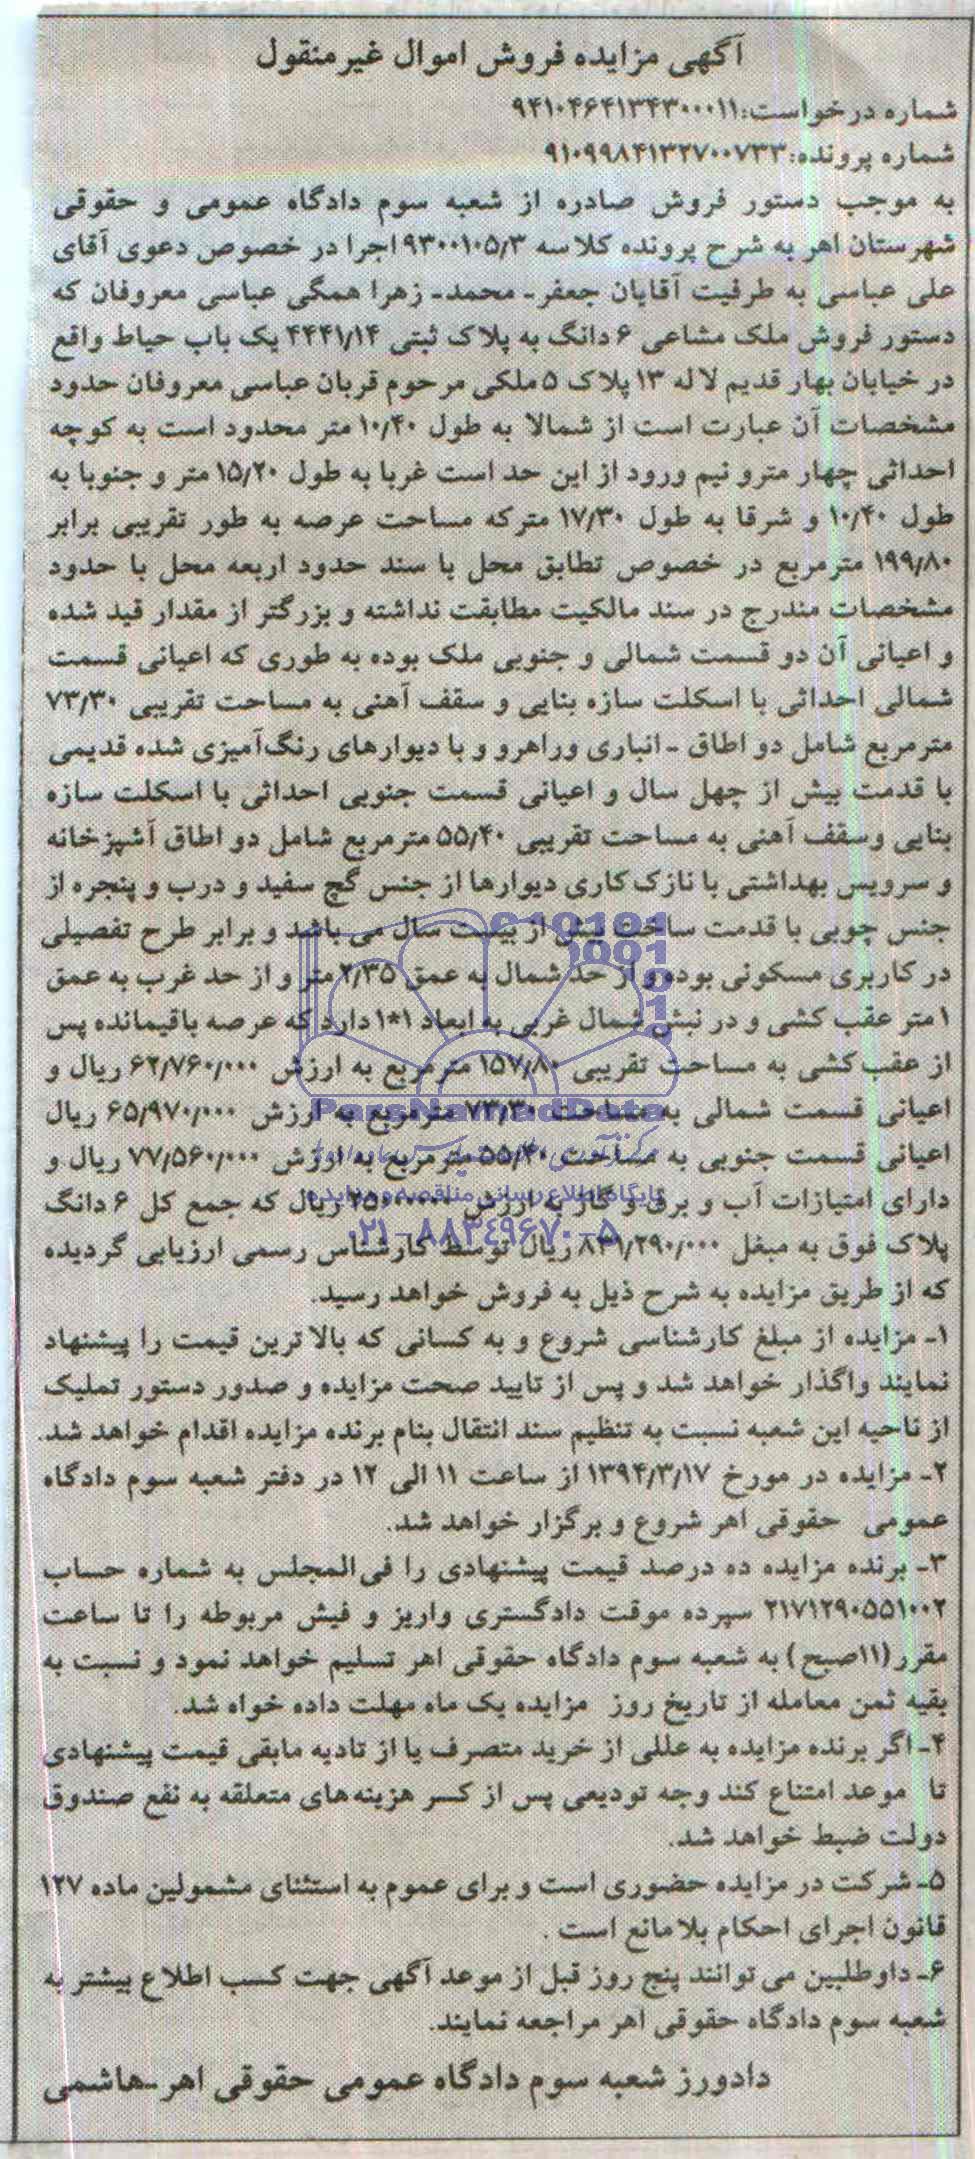 آگهی مزایده فروش اموال غیرمنقول
شماره درخواست:۹۴۱۰۴۶۴۱۳۴۳۰۰۰۱۱
شماره پرونده:۹۱۰۹۹۸۴۱۳۲۷۰۰۷۳۳
به موجب دستور فروش صادره از شعبه سوم دادگاه عمومی و حقوقی
شهرستان اهر به شرح پرونده کلاسه ۹۳۰۰۱۰۵/۳ اجرا در خصوص دعوی آقای
علی عباسی به طرفیت آقایان جعفر- محمد- زهرا همگی عباسی معروفان که
دستور فروش ملک مشاعی ۶ دانگ به پلاک ثبتی ۴۴۴۱/۱۴ یک باب حیاط واقع
در خیابان بهار قدیم لاله ۱۳ پلاک ۵ ملکی مرحوم قربان عباسی معروفان حدود
مشخصات آن عبارت است از شمالا به طول ۱۰/۴۰ متر محدود است به کوچه
احداثی چهار مترو نیم ورود از این حد است غربا به طول ۱۵/۲۰ متر و جنوبا به
طول ۱۰/۴۰ و شرقا به طول ۱۷/۳۰ مترکه مساحت عرصه به طور تقریبی برابر
۱۹۹/۸۰ مترمربع در خصوص تطابق محل با سند حدود اربعه محل با حدود
مشخصات مندرج در سند مالکیت مطابقت نداشته و بزرگتر از مقدار قید شده
و اعیانی آن دو قسمت شمالی و جنوبی ملک بوده به طوری که اعیانی قسمت
شمالی احداثی با اسکلت سازه بنایی و سقف آهنی به مساحت تقریبی ۷۳/۳۰
مترمربع شامل دو اطاق -انباری وراهرو و با دیوارهای رنگ‌آمیزی شده قدیمی
با قدمت بیش از چهل سال و اعیانی قسمت جنوبی احداثی با اسکلت سازه
بنایی وسقف آهنی به مساحت تقریبی ۵۵/۴۰ مترمربع شامل دو اطاق آشپزخانه
و سرویس بهداشتی با نازک کاری دیوارها از جنس گچ سفید و درب و پنجره از
جنس چوبی با قدمت ساخت بیش از بیست سال می باشد و برابر طرح تفصیلی
در کاربری مسکونی بوده و از حد شمال به عمق ۲/۳۵ متر و از حد غرب به عمق
۱ متر عقب کشی و در نبش شمال غربی به ابعاد ۱*۱ دارد که عرصه باقیمانده پس
از عقب‌کشی به مساحت تقریبی ۱۵۷/۸۰ مترمربع به ارزش ۶۲/۷۶۰/۰۰۰ ریال و
اعیانی قسمت شمالی به مساحت ۷۳/۳۰ مترمربع به ارزش ۶۵/۹۷۰/۰۰۰ ریال
اعیانی قسمت جنوبی به مساحت ۵۵/۴۰ مترمربع به ارزش ۷۷/۵۶۰/۰۰۰ ریال و
دارای امتیازات آب و برق و گاز به ارزش ریال که جمع کل ۶ دانگ
پلاک فوق به مبغل ۸۳۱/۲۹۰/۰۰۰ ریال توسط کارشناس رسمی ارزیابی گردیده
که از طریق مزایده به شرح ذیل به فروش خواهد رسید.
۱- مزایده از مبلغ کارشناسی شروع و به کسانی که بالاترین قیمت را پیشنهاد
نمایند واگذار خواهد شد و پس از تایید صحت مزایده و صدور دستور تملیک
از ناحیه این شعبه نسبت به تنظیم سند انتقال بنام برنده مزایده اقدام خواهد شد.
۲- مزایده در مورخ ۱۳۹۴/۳/۱۷ از ساعت ۱۱ الی ۱۲ در دفتر شعبه سوم دادگاه
عمومی حقوقی اهر شروع و برگزار خواهد شد.
۳- برنده مزایده ده درصد قیمت پیشنهادی را فی‌المجلس به شماره حساب
۲۱۷۱۲۹۰۵۵۱۰۰۲ سپرده موقت دادگستری واریز و فیش مربوطه را تا ساعت
مقرر(۱۱صبح) به شعبه سوم دادگاه حقوقی اهر تسلیم خواهد نمود و نسبت به
بقیه ثمن معامله از تاریخ روز مزایده یک ماه مهلت داده خواه شد.
۴- اگر برنده مزایده به عللی از خرید متصرف یا از تادیه مابقی قیمت پیشنهادی
تا موعد امتناع کند وجه تودیعی پس از کسر هزینه‌های متعلقه به نفع صندوق
دولت ضبط خواهد شد.
۵- شرکت در مزایده حضوری است و برای عموم به استثنای مشمولین ماده ۱۲۷
قانون اجرای احکام بلامانع است .
۶- داوطلبین می توانند پنج روز قبل از موعد آگهی جهت کسب اطلاع بیشتر به
شعبه سوم دادگاه حقوقی اهر مراجعه نمایند.
دادورز شعبه سوم دادگاه عمومی حقوقی اهر-هاشمی
ParsNamadData
پایگاه اطلاع رسانی مناقصه و مزایده
۰۲۱-۸۸۳۴۹۶۷۰-۵